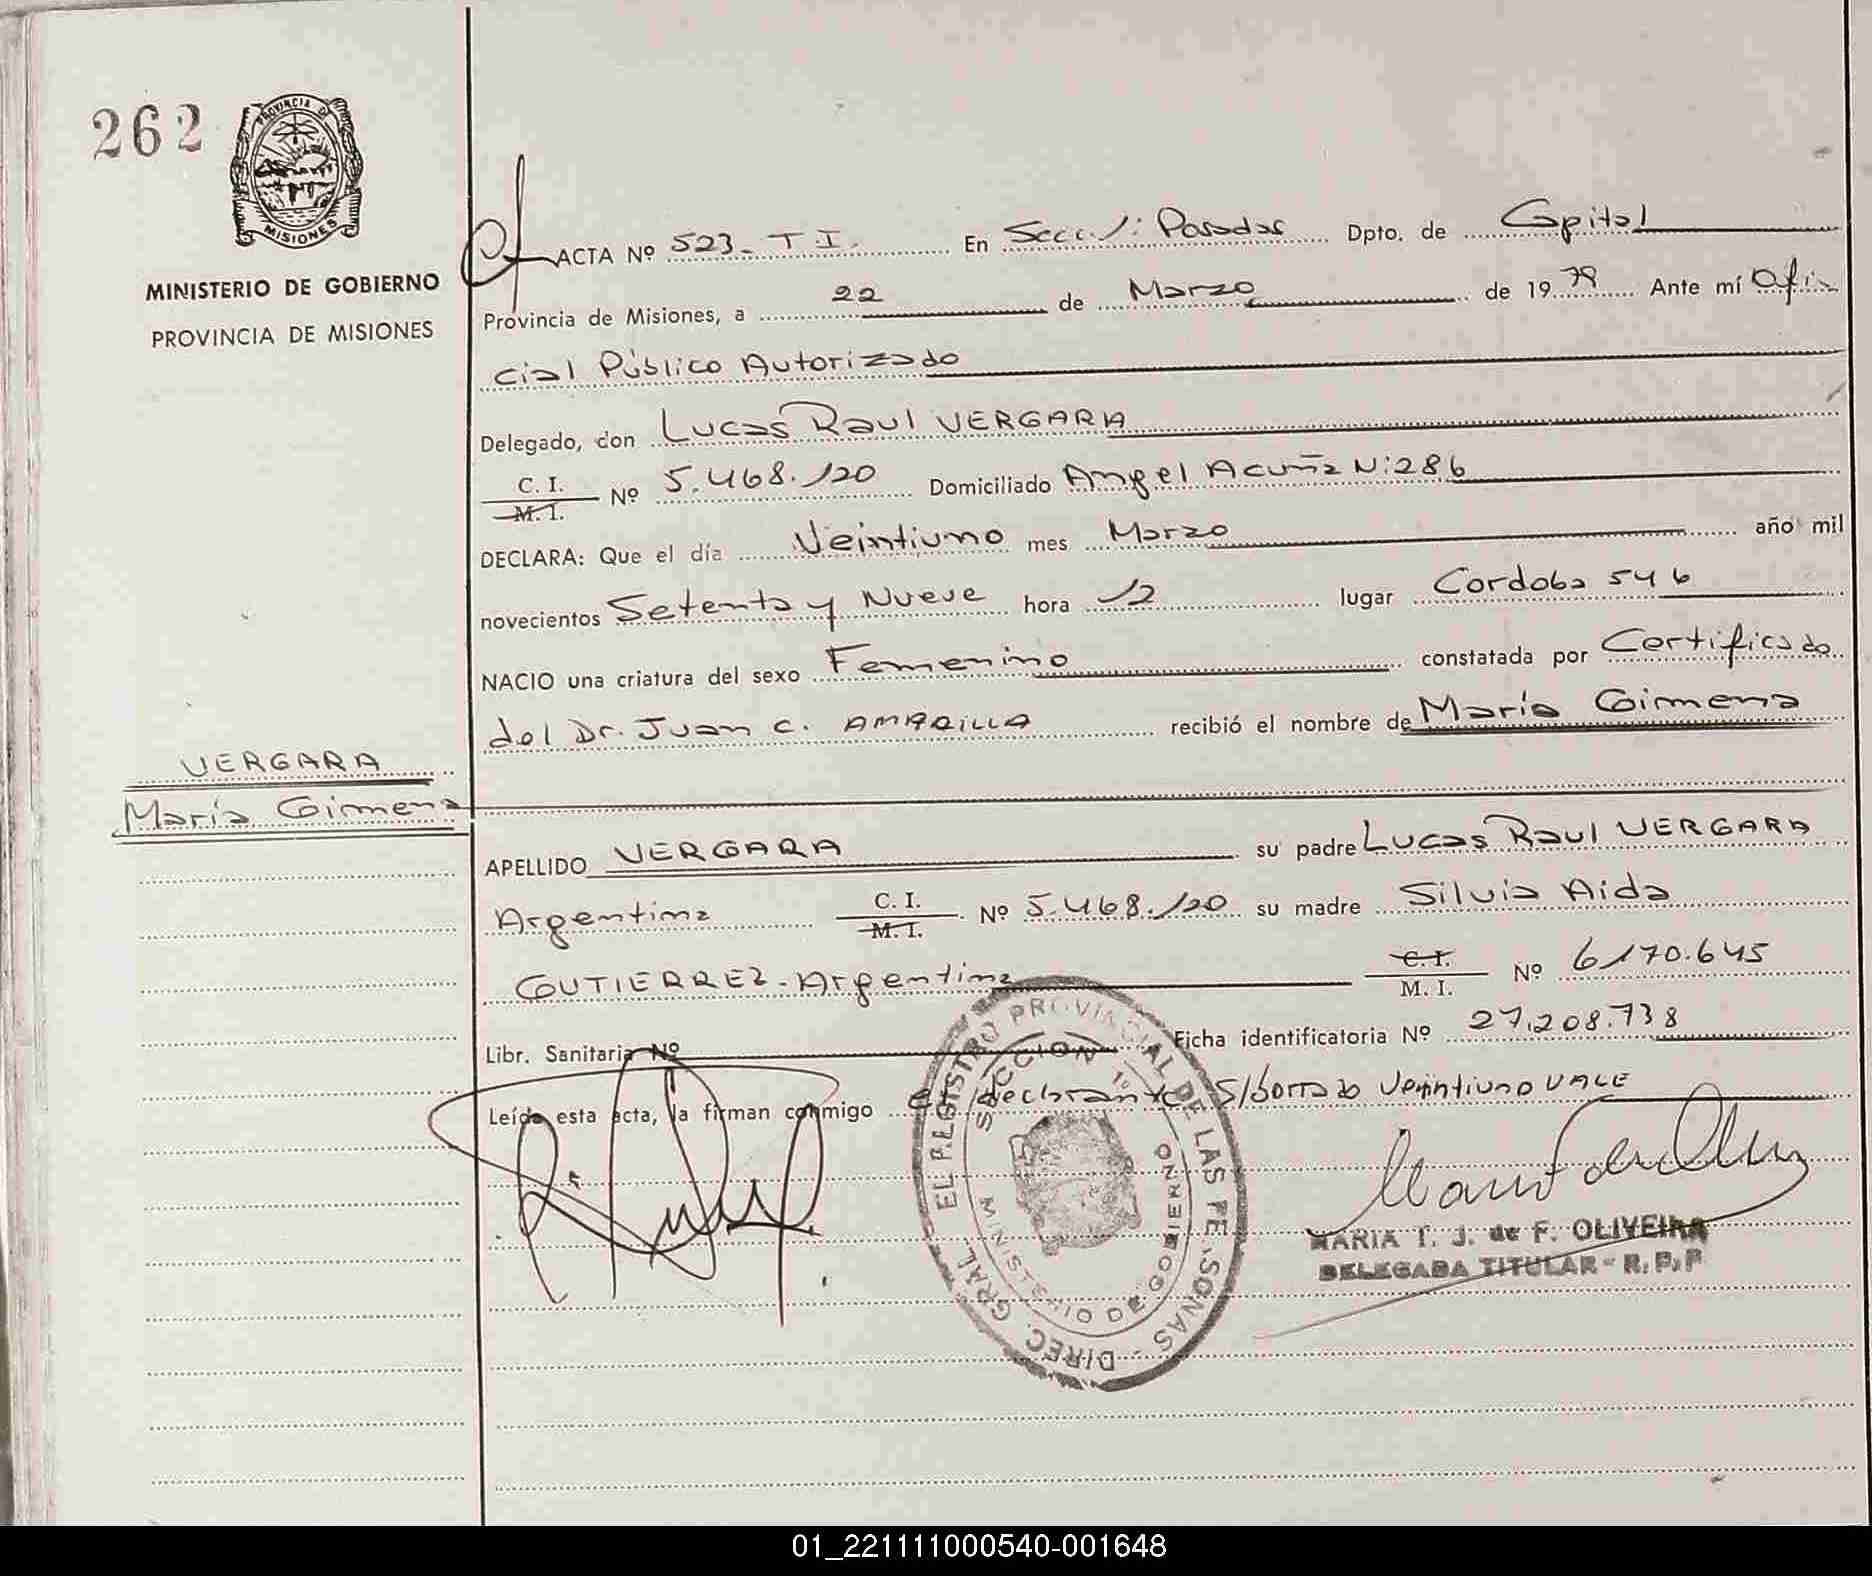 262
PROVINCIA DE
MISIONES
MINISTERIO DE GOBIERNO
PROVINCIA DE MISIONES
ACTA Nº 523- T I. En Secc. 1: Posadas Dpto. de Capital
Provincia de Misiones, a 22 de Marzo de 1979 Ante mí Ofi
cial Público Autorizado
Delegado, don Lucas Raul VERGARA
C. I.
M. I. Nº 5.468.120 Domiciliado Angel Acuña N: 286
DECLARA: Que el día Veintiuno mes Marzo año mil
novecientos Setenta y Nueve hora 12 lugar Cordoba 546
NACIO una criatura del sexo Femenino constatada por Certificado
del Dr. Juan C. AMARILLA recibió el nombre de María Gimena
VERGARA
María Gimena
APELLIDO VERGARA su padre Lucas Raul VERGARA
Argentina C. I. M. I. Nº 5.468.120 su madre Silvia Aida
GUTIERREZ - Argentina C. I. M. I. Nº 6170.645
Libr. Sanitaria Nº Ficha identificatoria Nº 27.208.738
Leída esta acta, la firman conmigo el declarante S/borrado Veintiuno VALE
DIREC. GRAL. EL REGISTRO PROVINCIAL DE LAS PERSONAS
SECCION 1º
MINISTERIO DE GOBIERNO
MARIA T. J. de F. OLIVEIRA
DELEGADA TITULAR - R. P. P
01_221111000540-001648